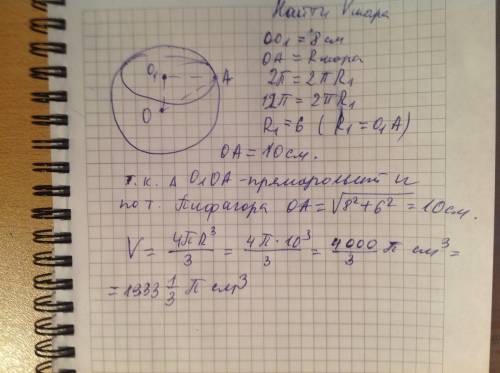 Найти Vшара
OO₁ = 8 см
OA = Rшара
2π = 2πR₁
12π = 2πR₁
R₁ = 6 (R₁ = O₁A)
O₁
A
O
OA = 10 см.
т.к. Δ O₁OA - прямоугольный и
по т. Пифагора OA = √8²+6² = 10 см.
V = 4πR³/3 = 4π·10³/3 = 4000/3 π см³ =
= 1333 1/3 π см³